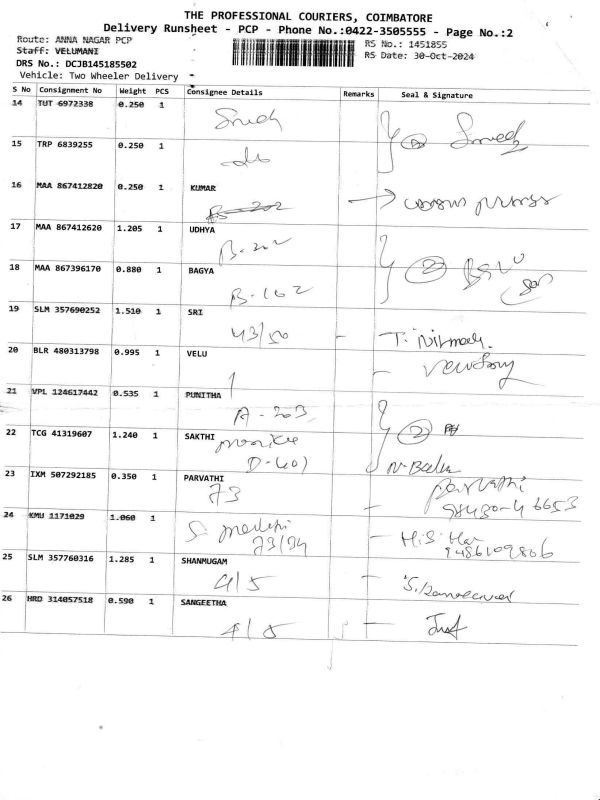 THE PROFESSIONAL COURIERS, COIMBATORE
Delivery Runsheet - PCP - Phone No.:0422-3505555 - Page No.:2
Route: ANNA NAGAR PCP RS No.: 1451855
Staff: VELUMANI RS Date: 30-Oct-2024
DRS No.: DCJB145185502
Vehicle: Two Wheeler Delivery
S No Consignment No Weight PCS Consignee Details Remarks Seal & Signature
14 TUT 6972338 0.250 1
15 TRP 6839255 0.250 1
16 MAA 867412820 0.250 1 KUMAR
B-202
17 MAA 867412620 1.205 1 UDHYA
B-202
2
18 MAA 867396170 0.880 1 BAGYA
B-102
19 SLM 357690252 1.510 1 SRI
43/50 T. Nirmal
20 BLR 480313798 0.995 1 VELU
21 VPL 124617442 0.535 1 PUNITHA
A-203 2
22 TCG 41319607 1.240 1 SAKTHI
D-401
23 IXM 507292185 0.350 1 PARVATHI
73 parvathi
98430-46653
24 KMU 1171029 1.060 1
73/94
9486109806
25 SLM 357760316 1.285 1 SHANMUGAM
4/5
26 HRD 314057518 0.590 1 SANGEETHA
4/5